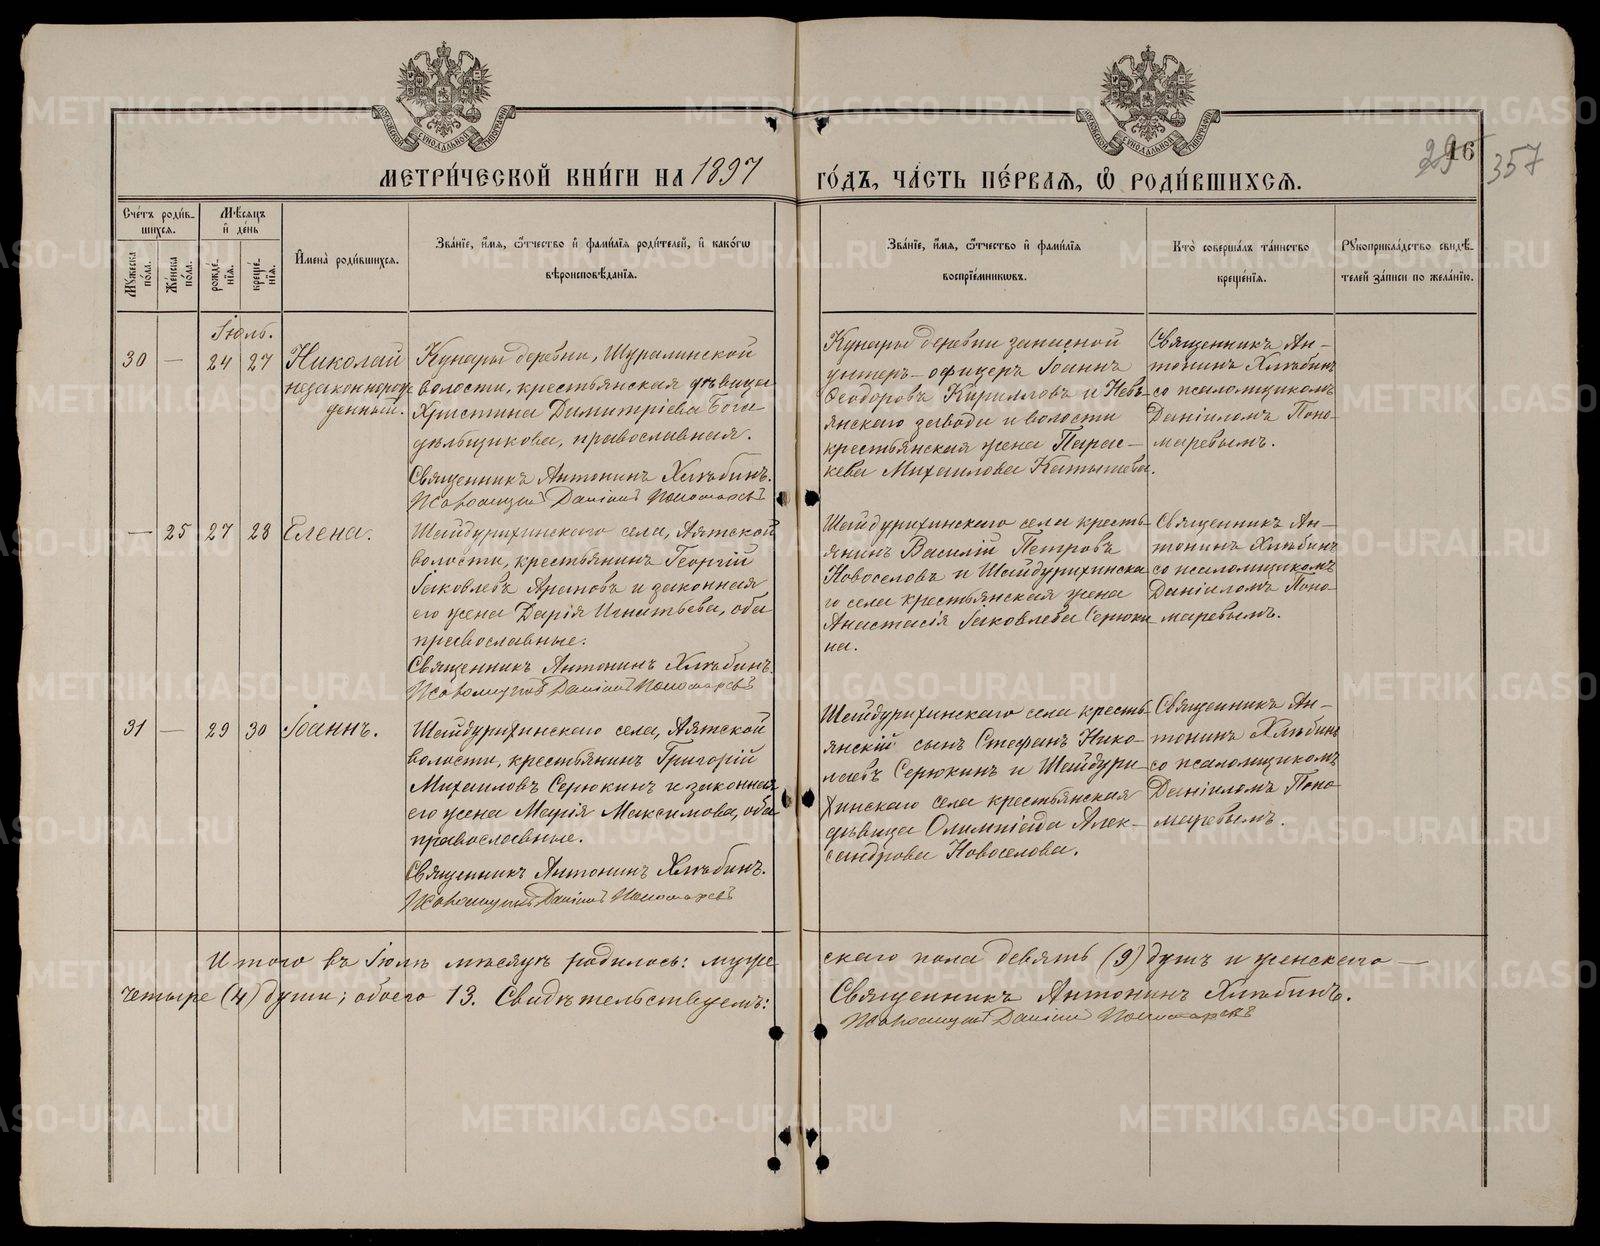 МЕТРИ́ЧЕСКОЙ КНИ́ГИ НА 1897 ГО́ДЪ, ЧА́СТЬ ПЕ́РВАЯ, Ѿ РОДИ́ВШИХСЯ.
16
357
Сче́тъ роди́в-
шихся.
Мѣ́сяцъ
и҆ де́нь
Му́жеска
по́ла.
Же́нска
по́ла.
рожде́-
нїя.
креще́-
нїя.
И҆мена̀ роди́вшихся.
Зва́нїе, и҆́мя, ѻ҆́тчество и҆ фами́лїя роди́телей, и҆ како́гѡ
вѣроисповѣ́данїя.
Зва́нїе, и҆́мя, ѻ҆́тчество и҆ фами́лїя
воспрїе́мникѡвъ.
Кто̀ соверша́лъ та́инство
креще́нїя.
Рꙋкоприкла́дство свидѣ́-
телей за́писи по жела́нїю.
Іюль.
30 — 24 27
Николай
незаконнорож
денный.
Кунары деревни, Шуралинской
волости, крестьянская дѣвица
Христина Димитріева Бога-
дѣльщикова, православная.
Священникъ Антонинъ Хлѣбинъ.
Псаломщикъ Даніилъ Пономаревъ
Кунары деревни запасной
унтеръ-офицеръ Іоаннъ
Ѳеодоровъ Кирилловъ и Невь-
янскаго завода и волости
крестьянская жена Парас-
кева Михаилова Катышева.
Священникъ Ан-
тонинъ Хлѣбинъ
со псаломщикомъ
Даніиломъ Поно-
маревымъ.
— 25 27 28
Елена.
Шайдурихинскаго села, Аятской
волости, крестьянинъ Георгій
Іаковлевъ Араповъ и законная
его жена Дарія Игнатьева, оба
православные.
Священникъ Антонинъ Хлѣбинъ.
Псаломщикъ Даніилъ Пономаревъ
Шайдурихинскаго села кресть-
янинъ Василій Петровъ
Новоселовъ и Шайдурихинска
го села крестьянская жена
Анастасія Іаковлева Серюки
на.
Священникъ Ан-
тонинъ Хлѣбинъ
со псаломщикомъ
Даніиломъ Поно-
маревымъ.
31 — 29 30
Іоаннъ.
Шайдурихинскаго села, Аятской
волости, крестьянинъ Григорій
Михаиловъ Серюкинъ и законная
его жена Марія Максимова, оба
православные.
Священникъ Антонинъ Хлѣбинъ.
Псаломщикъ Даніилъ Пономаревъ
Шайдурихинскаго села кресть-
янскій сынъ Стефанъ Нико-
лаевъ Серюкинъ и Шайдури-
хинскаго села крестьянская
дѣвица Олимпіада Алек-
сандрова Новоселова.
Священникъ Ан-
тонинъ Хлѣбинъ
со псаломщикомъ
Даніиломъ Поно-
маревымъ.
Итого въ Іюлѣ мѣсяцѣ родилось: муже скаго пола девять (9) душъ и женскаго —
четыре (4) души; обоего 13. Свидѣтельствуемъ: Священникъ Антонинъ Хлѣбинъ.
Псаломщикъ Даніилъ Пономаревъ
METRIKI.GASO-URAL.RU